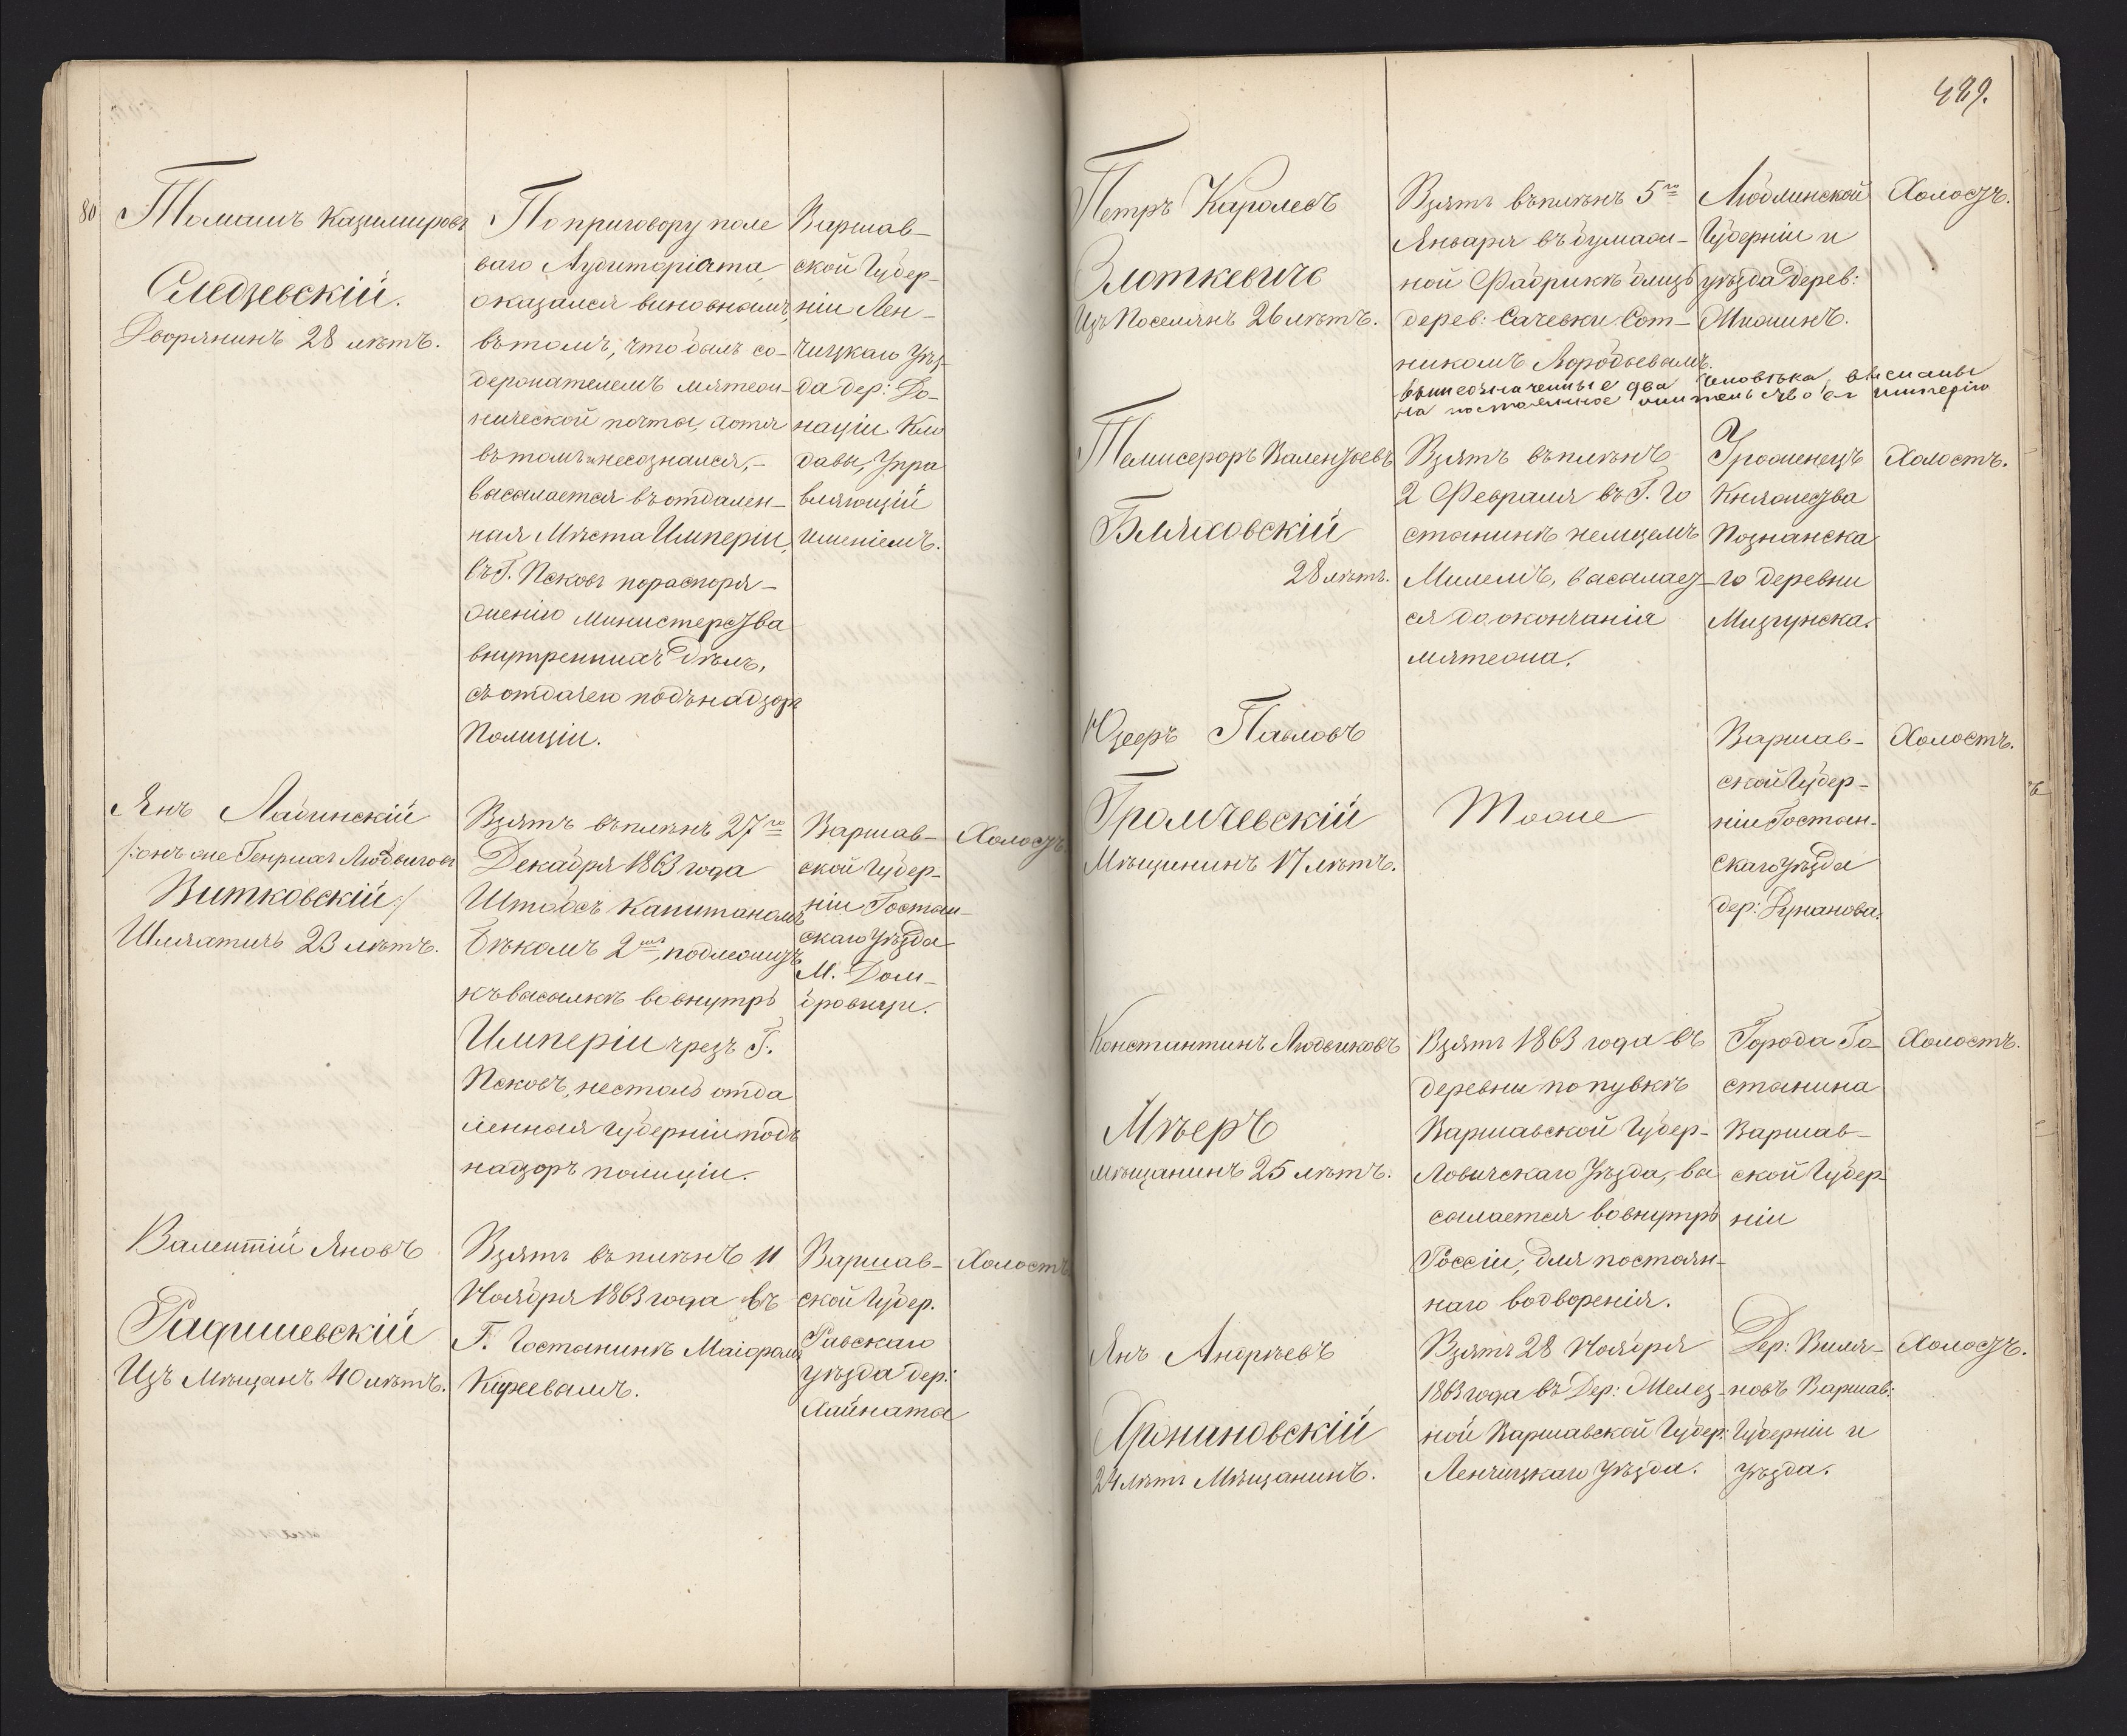 80
Томашъ Казимировъ
Следзевскій.
Дворянинъ 28 лѣтъ.
По приговору поле
ваго Аудиторіата,
оказался виновнымъ,
въ томъ, что былъ со-
держателемъ мятеж-
нической почты, хотя
въ томъ и несознался, -
высылается въ отдален-
ныя Мѣста Имперіи,
въ Г. Псковъ по распоря-
женію Министерства
внутреннихъ дѣлъ,
съ отдачею подъ надзоръ
Полиціи.
Варшав-
ской Губер-
ніи Лен-
чицкаго Уѣз-
да дер: До-
націи Кло
давы, Упра
вляющій
имѣніемъ.
Янъ Лабинскій
/:онъ же Генрихъ Людвиговъ
Витковскій:/
Шляхтичь 23 лѣтъ.
Взятъ въ плѣнъ 27го
Декабря 1863 года
Штабсъ Капитаномъ
Бѣкомъ 2мъ, подлежитъ
къ высылкѣ во внутрь
Имперіи чрезъ Г.
Псковъ, не столь отда
ленныя губерніи подъ
надзоръ полиціи.
Варшав-
ской Губер-
ніи Гостын-
скаго Уѣзда
М. Дом-
бровицы.
Холостъ.
Валентій Яновъ
Радзишевскій
Изъ Мѣщанъ 40 лѣтъ.
Взятъ въ плѣнъ 11
Ноября 1863 года въ
Г. Гостынинѣ Маіоромъ
Кирѣевымъ.
Варшав-
ской Губер.
Равскаго
уѣзда дер:
Хайната
Холостъ.
489.
Петръ Каролевъ
Злоткевичъ
Изъ Поселянъ 26 лѣтъ.
Взятъ въ плѣнъ 5го
Января въ бумаж-
ной Фабрикѣ близь
дерев: Сачевки Сот-
никомъ Воробьевымъ.
Люблинской
Губерніи и
уѣзда дерев:
Холостъ.
вышеозначенные два человѣка, высланы
на постоянное жительство въ имперію
Валентьевъ
Бляховскій
28 лѣтъ.
Взятъ въ плѣнъ
2 Февраля въ Г. Го
стынинѣ немцемъ
Милемъ, высылает-
ся до окончанія
мятежа.
Уроженецъ
Княжества
Познанска
го деревни
Холостъ.
Юзефъ Павловъ
Громчевскій
Мѣщининъ 17 лѣтъ.
Тоже
Варшав-
ской Губер-
ніи Гостын-
скаго уѣзда
дер: Дунанова.
Холостъ.
Константинъ Людвиковъ
Мѣеръ
мѣщанинъ 25 лѣтъ.
Взятъ 1863 года въ
деревни попувкѣ
Варшавской Губер-
Ловичскаго Уѣзда, вы
сылается во внутрь
Россіи, для постоян-
наго водворенія.
Города Го-
стынина
Варшав-
ской Губер-
ніи
Холостъ.
Янъ Андрѣевъ
Хронановскій
24 лѣтъ Мѣщанинъ.
Взятъ 28 Ноября
1863 года въ Дер: Желез-
ной Варшавской Губер:
Ленчицкаго Уѣзда.
Дер: Виля-
новъ Варшав:
Губерніи и
Уѣзда.
Холостъ.